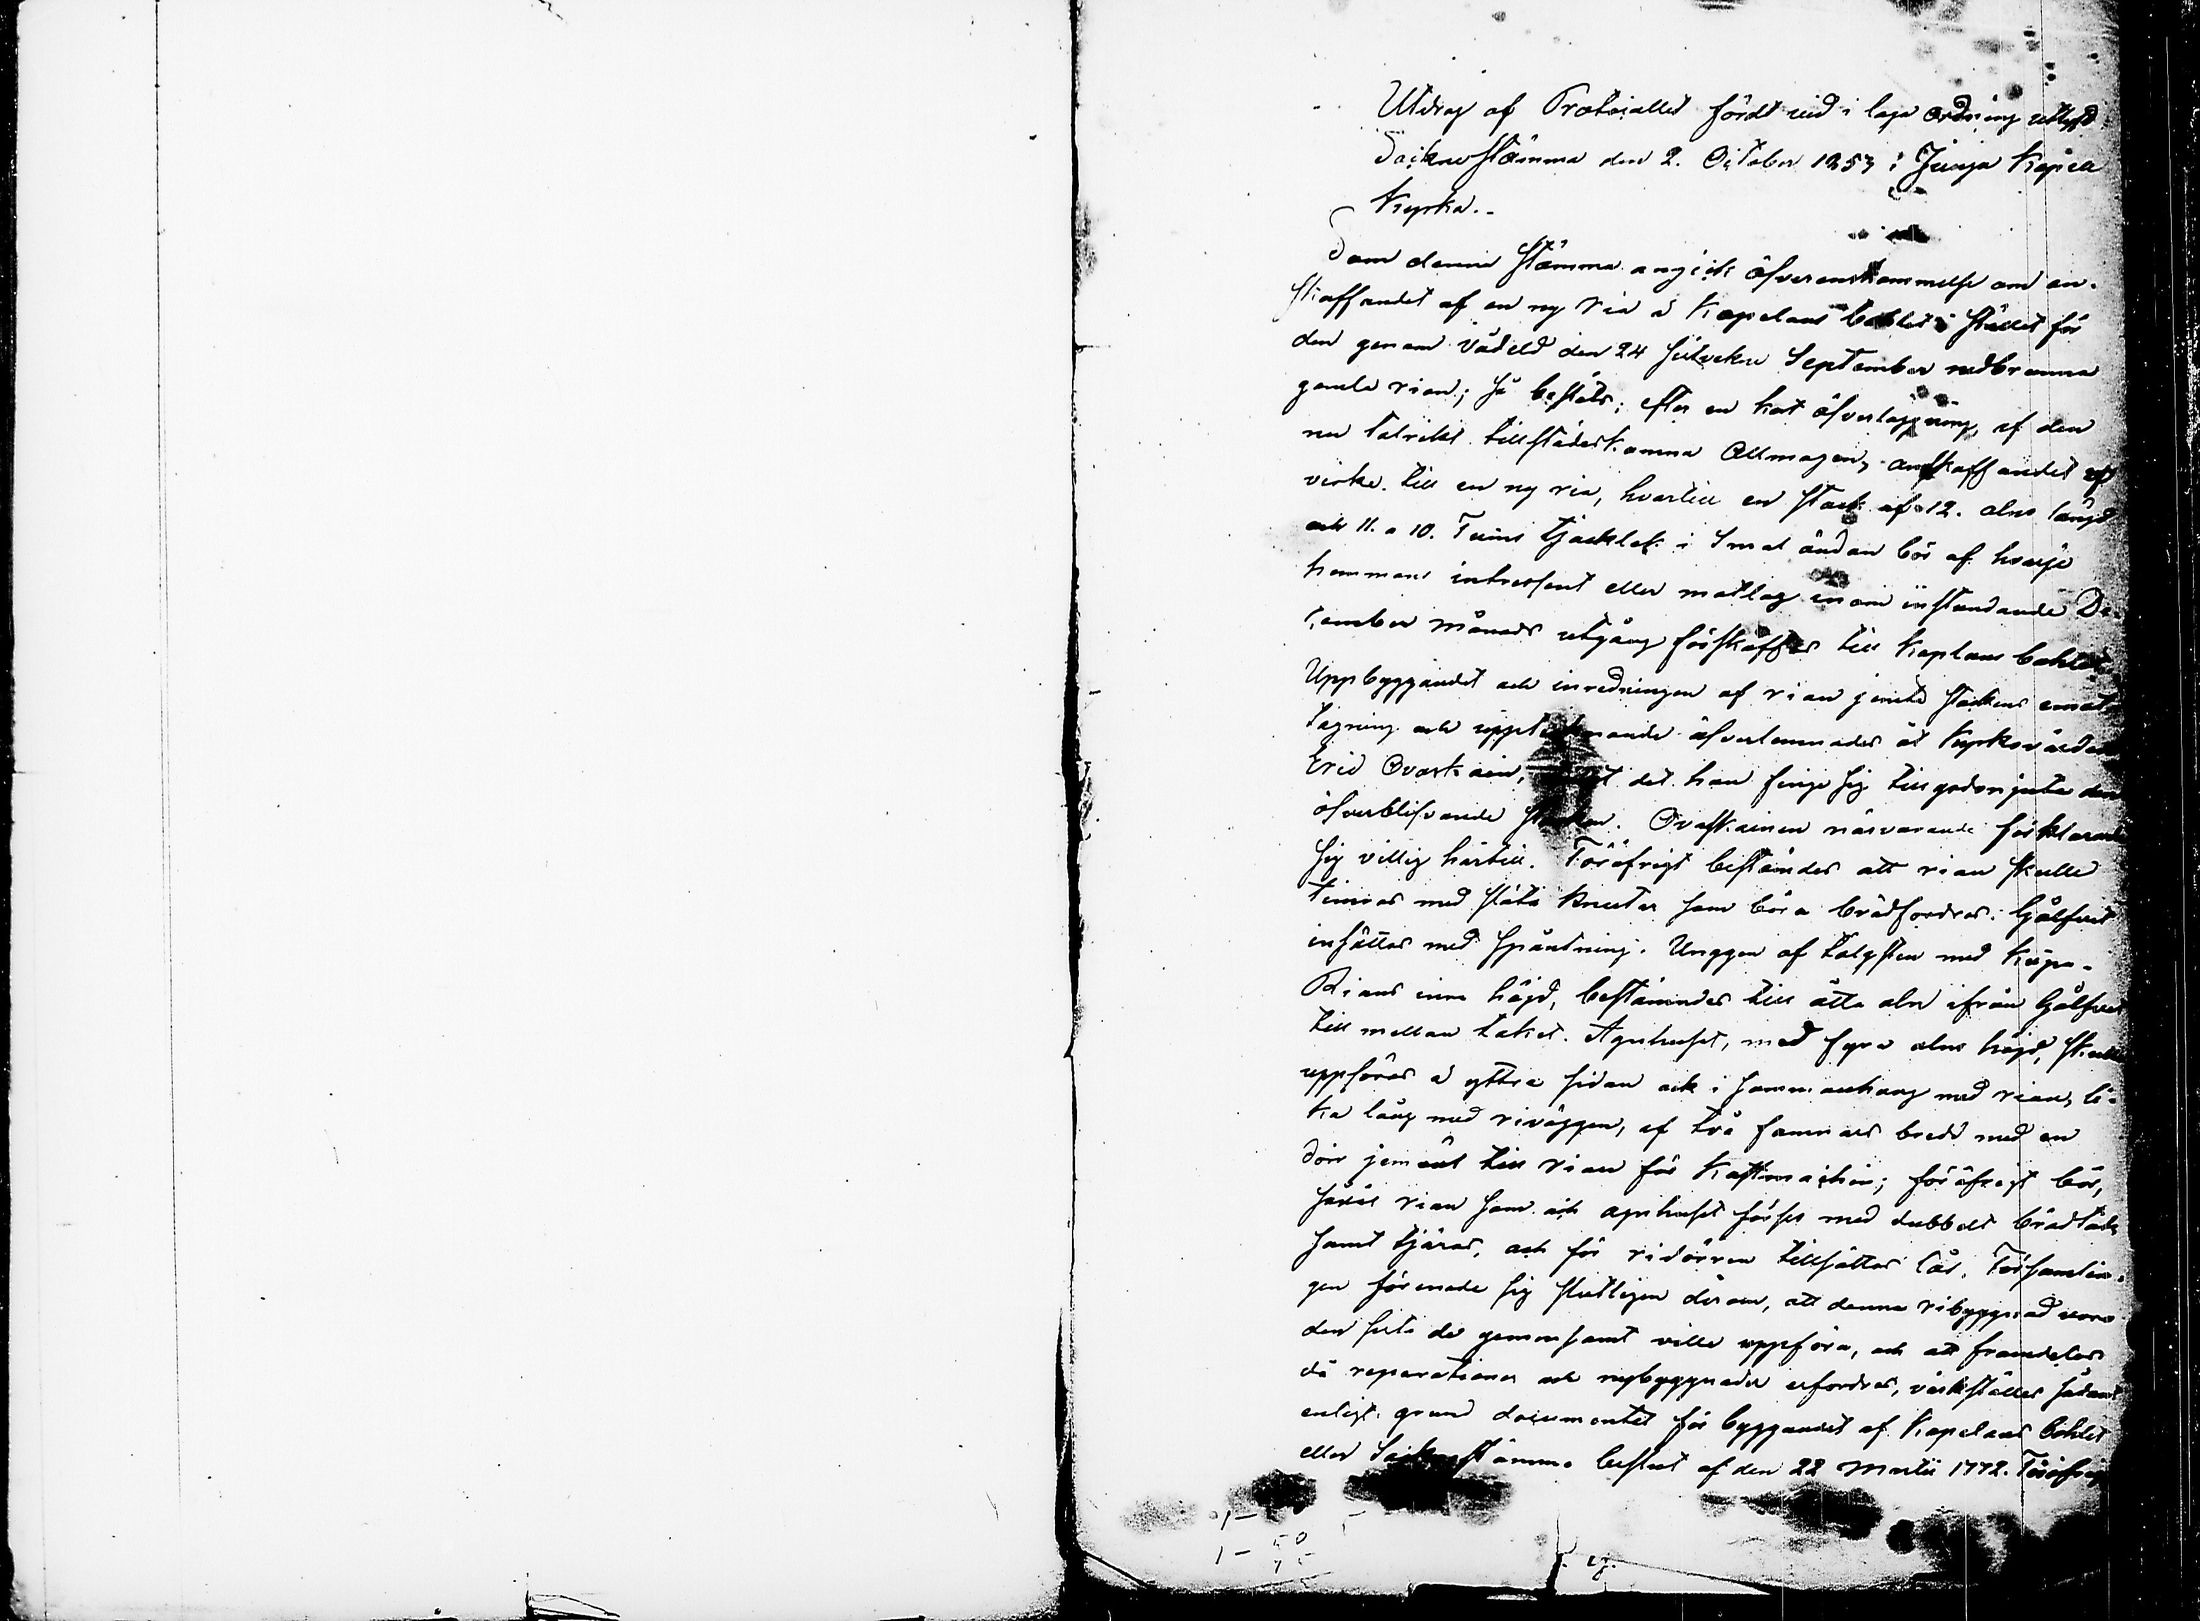 Utdrag af Protocollet fördt vid i laga ordning utlyst
Sockne stämma den 2. October 1853 i Juuga Kapell
Kyrka.
Som denna stämma angick öfverenskommelse om an-
skaffandet af en ny ria å Kapelans bohlet i stället för
den genom vådeld den 24 sistvekne September nedbrunna
gamla rian; så beslöts, efter en kort öfverläggning af den
nu talrikt tillstädeskomna Allmogen, anskaffandet af
virke till en ny ria, hvartill en stock af 12. alns längd
och 11. a 10. Tums tjocklek i Smal ändan bör af hvarje
hemmans intressent eller matlag inom instundande De-
cember månads utgång förskaffas till Kaplans bohlet.
Uppbyggandet och inredningen af rian jemte stockens emot-
tagning och uppt nande öfverlemnades åt Kyrkovärden
Eric Ovaskain, det han finge sig tillgodonjuta den
öfverblifvande stocken. Ovaskainen närvarande förklarade
sig villig härtill. Föröfrigt bestämdes att rian skulle
timras med släta knutar som böra brädfordras. Gålfvet
insättes med spåntning. Unggen af talgsten med Kupa.
Rians inre höjd, bestämmdes till åtta aln ifrån Gålfvet
till mellan taket. Agnhuset, med fyra alns höjd, skulle
uppföras å yttre sidan och i sammanhang med rian, li-
ka lång med riväggen, af två famnars bredd med en
dörr jemväl till rian för Kastmachin; föröfrigt bör,
såväl rian som ock agnhuset förses med dubbelt brädtäck
samt tjäras, och för ridörren tillsättas lås. Församlin-
gen förenade sig slutligen derom, att denna ribyggnad vore
den sista de gemensamt ville uppföra, och att framdeles
då reparationer och nybyggnader erfordras, värkställes sådant
enligt grund documentet för byggandet af Kapelans bohlet
eller Sockne stämmo beslut af den 22 Martii 1772. Föröfrigt
1 —
1 — 50
75